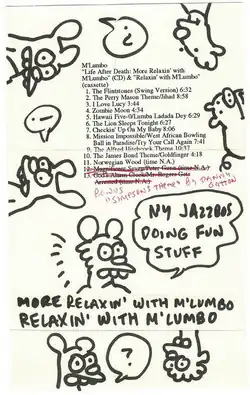 ?
M'Lumbo
"Life After Death: More Relaxin' with
M'Lumbo" (CD) & "Relaxin' with M'Lumbo"
(cassette)
1. The Flintstones (Swing Version) 6:32
2. The Perry Mason Theme/Jihad 8:58
3. I Love Lucy 3:44
4. Zombie Moon 4:34
5. Hawaii Five-0/Lumba Ladada Dey 6:29
6. The Lion Sleeps Tonight 6:27
7. Checkin' Up On My Baby 8:06
8. Mission Impossible/West African Bowling
Ball in Paradise/Try Your Call Again 7:41
9. The Alfred Hitchcock Theme 10:37
10. The James Bond Theme/Goldfinger 4:18
11. Norwegian Wood (time N.A.)
"SIMPSONS THEME" BY DANNY
NY JAZZBOS
DOING FUN
STUFF
MORE RELAXIN' WITH M'LUMBO
RELAXIN' WITH M'LUMBO
?